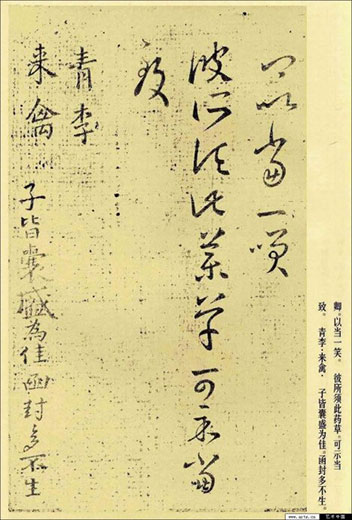 卿以當一笑
彼所須此藥草可示當
致
青李
來禽 子皆囊盛為佳函封多不生
卿。以当一笑。彼所须此药草。可示当
致。青李·来禽·子皆囊盛为佳。函封多不生。
www.artx.cn 艺术中国